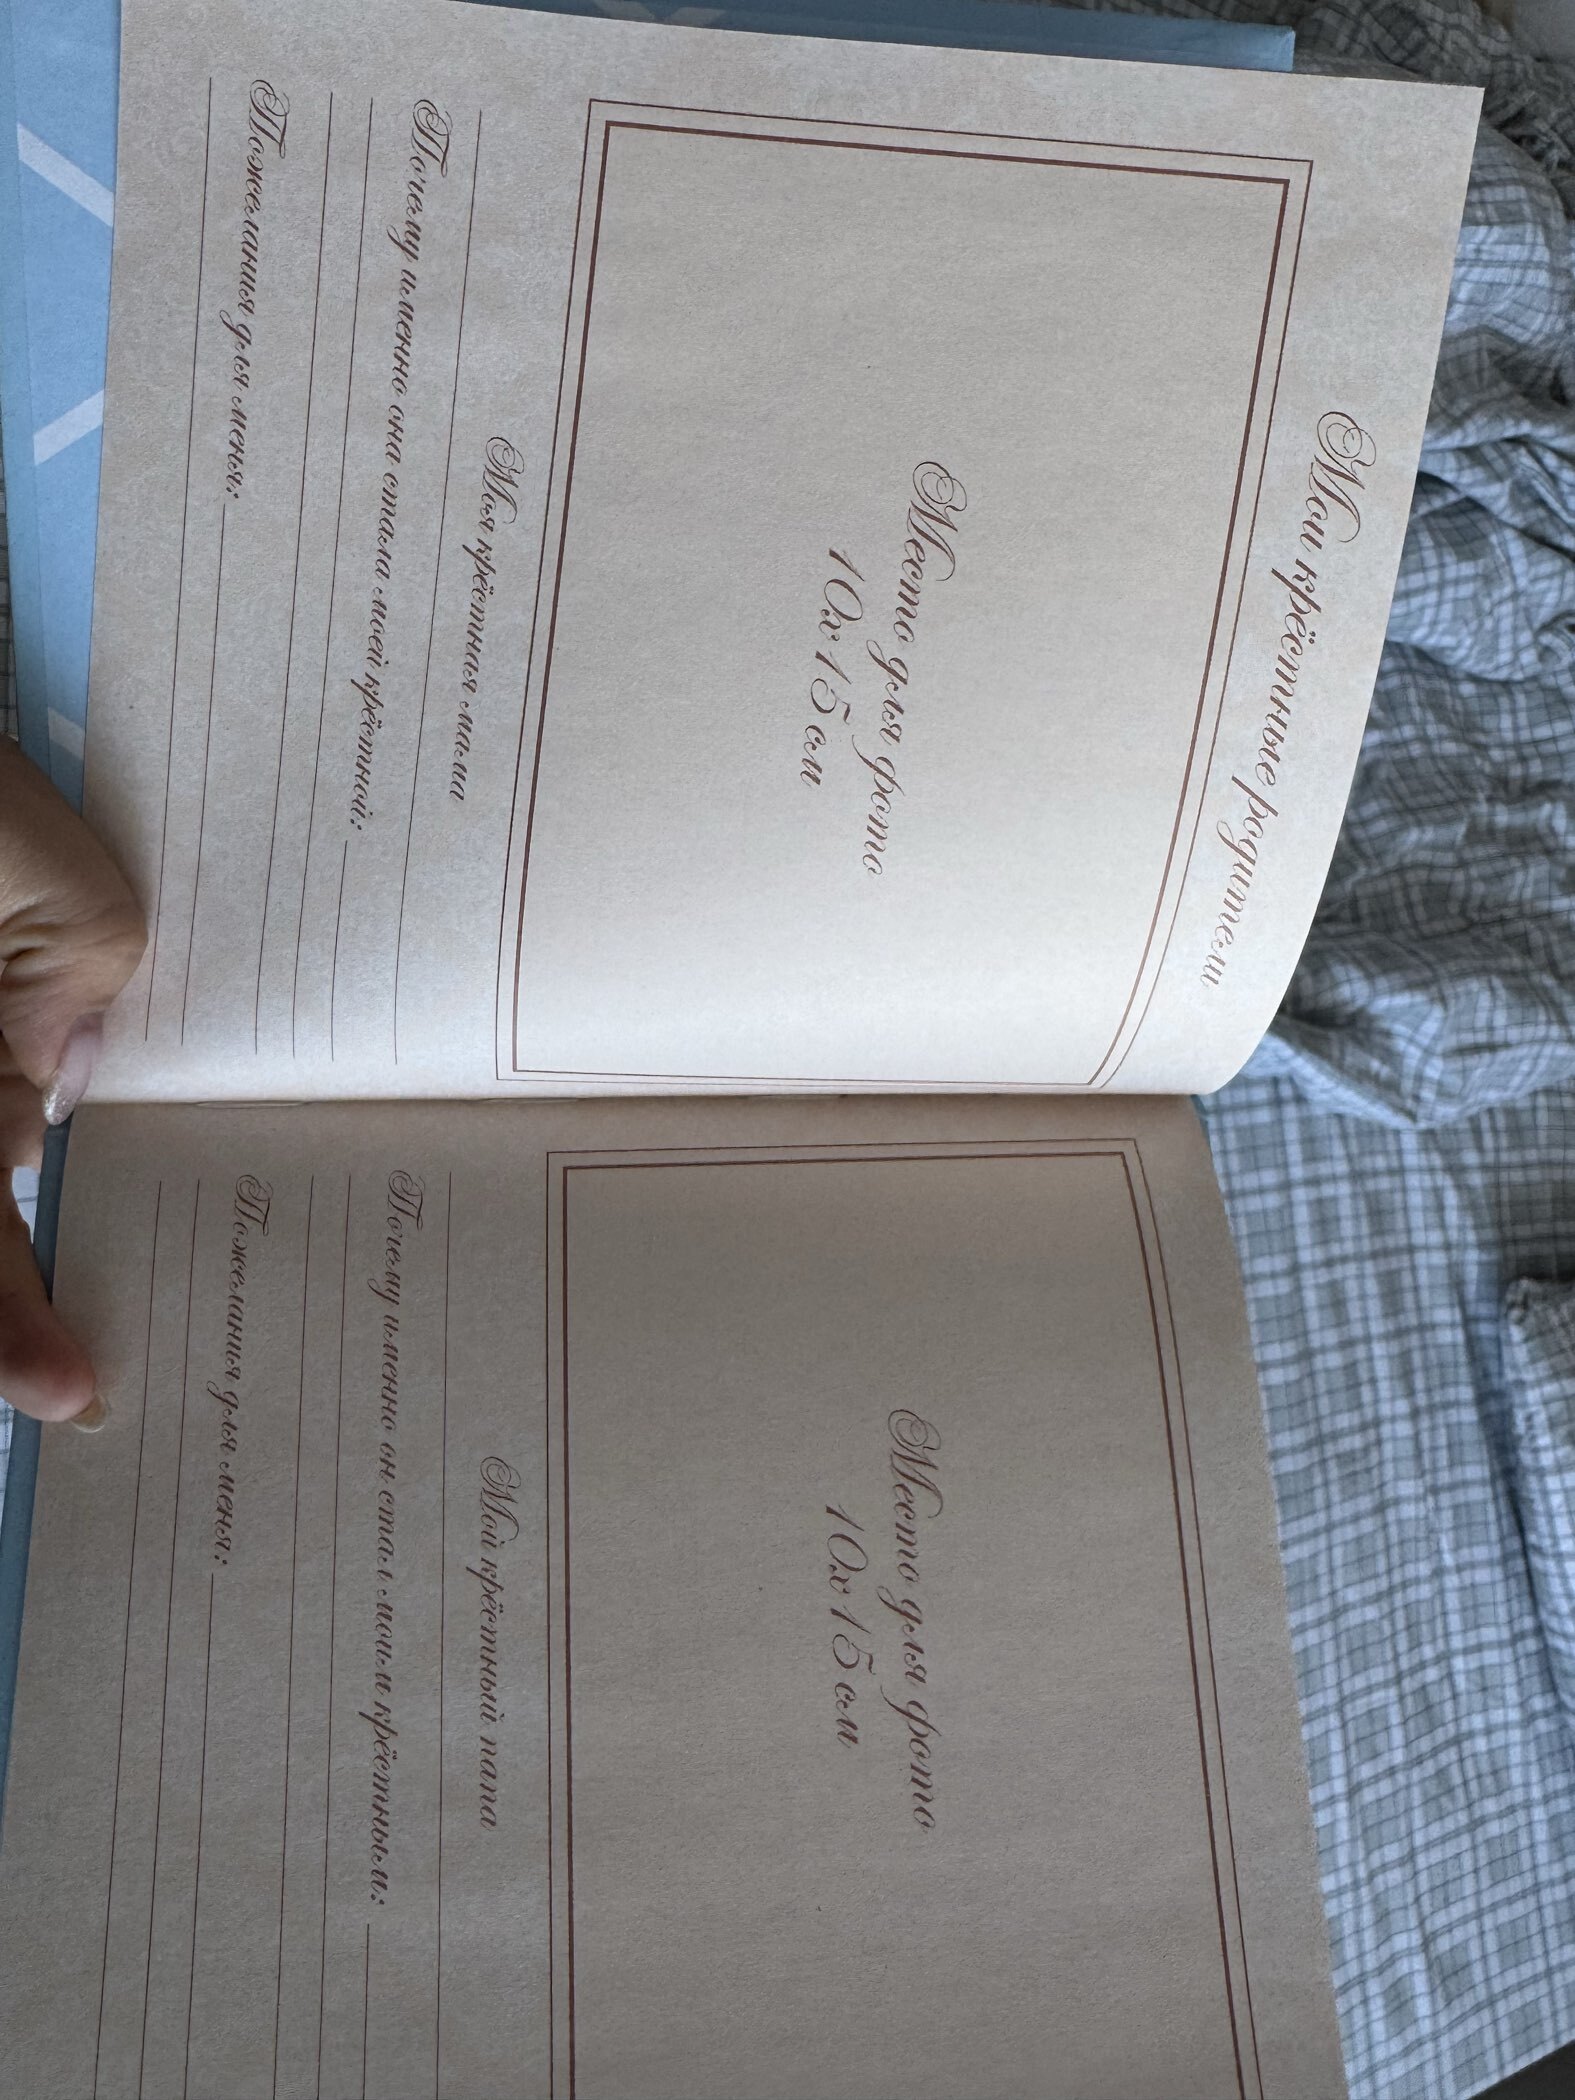 Мои крёстные родители
Место для фото
10х15 см
Моя крёстная мама
Почему именно она стала моей крёстной:
Пожелания для меня:
Место для фото
10х15 см
Мой крёстный папа
Почему именно он стал моим крёстным:
Пожелания для меня: